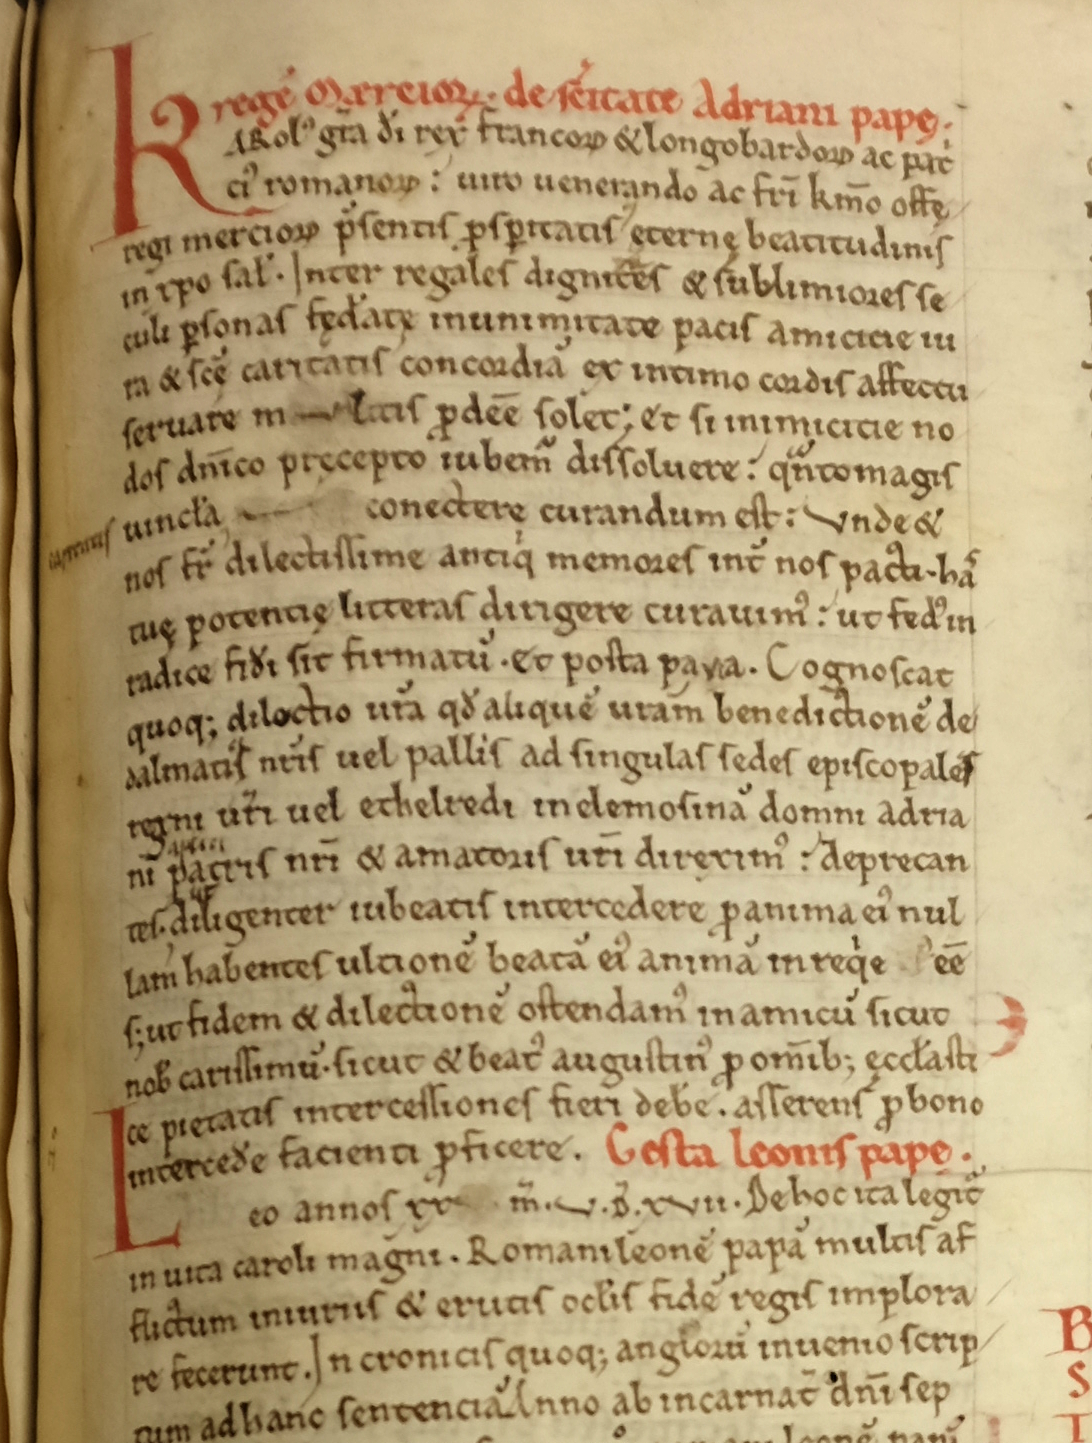 regē Merciorꝝ. de sc̄itate Adriani pape.
KARolꝰ gr̄a d̄i rex francoꝝ & longobardoꝝ ac pat̄
ciꝰ romanoꝝ: uiro uenerando ac fr̄i km̄o offę
regi mercioꝝ p̄sentis ꝓsꝑitatis ęternę beatitudinis
in xp̄o sal̄. Inter regales dignit̄es & sublimiores se
culi ꝑsonas fęd̄atę inunimitate pacis amicicie iu
ra & sc̄ę caritatis concordiā ex intimo cordis affectu
seruare m ltis ꝓdeē solet; et si inimicicie no
dos dn̄ico pręcepto iubem̄ dissoluere: qn̄tomagis
uincl̄a conectere curandum est: Vnde &
nos fr̄ dilectissime antiq̄ memores int̄ nos pacti. hā
tuę potentię litteras dirigere curauimꝰ: ut fedꝰ in
radice fid̄i sit firmatū. et posta paya. Cognoscat
quoq; dilectio ur̄a qd̄ aliquē uram̄ benedictionē de
dalmaticis nr̄is uel pallis ad singulas sedes episcopales
regni ur̄i uel ethelredi in elemosinā domni adria
ni patris nr̄i & amatoris ur̄i direximꝰ: deprecan
tes. diligenter iubeatis intercedere ꝓ anima eiꝰ nul
lam habentes ultionē beatā eiꝰ animā in reqꝰe eē
s; ut fidem & dilectionē ostendamꝰ in amicū sicut
nob̄ carissimū. sicut & beatꝰ augustinꝰ ꝓ omīb; ęccl̄asti
ce pietatis intercessiones fieri deb̄e. asserens ꝓ bono
interced̄e facienti ꝓficere. Gesta leonis pape.
Leo annos xx m̄. V. D̄. xVii. De hoc ita legit̄
in uita caroli magni. Romani leonē papā multis af
flictum iniuriis & erutis oclis fidē regis implora
re fecerunt. In cronicis quoq; anglorū inuenio scrip
tum ad hanc sentenciā. Anno ab incarnat̄ dn̄i sep